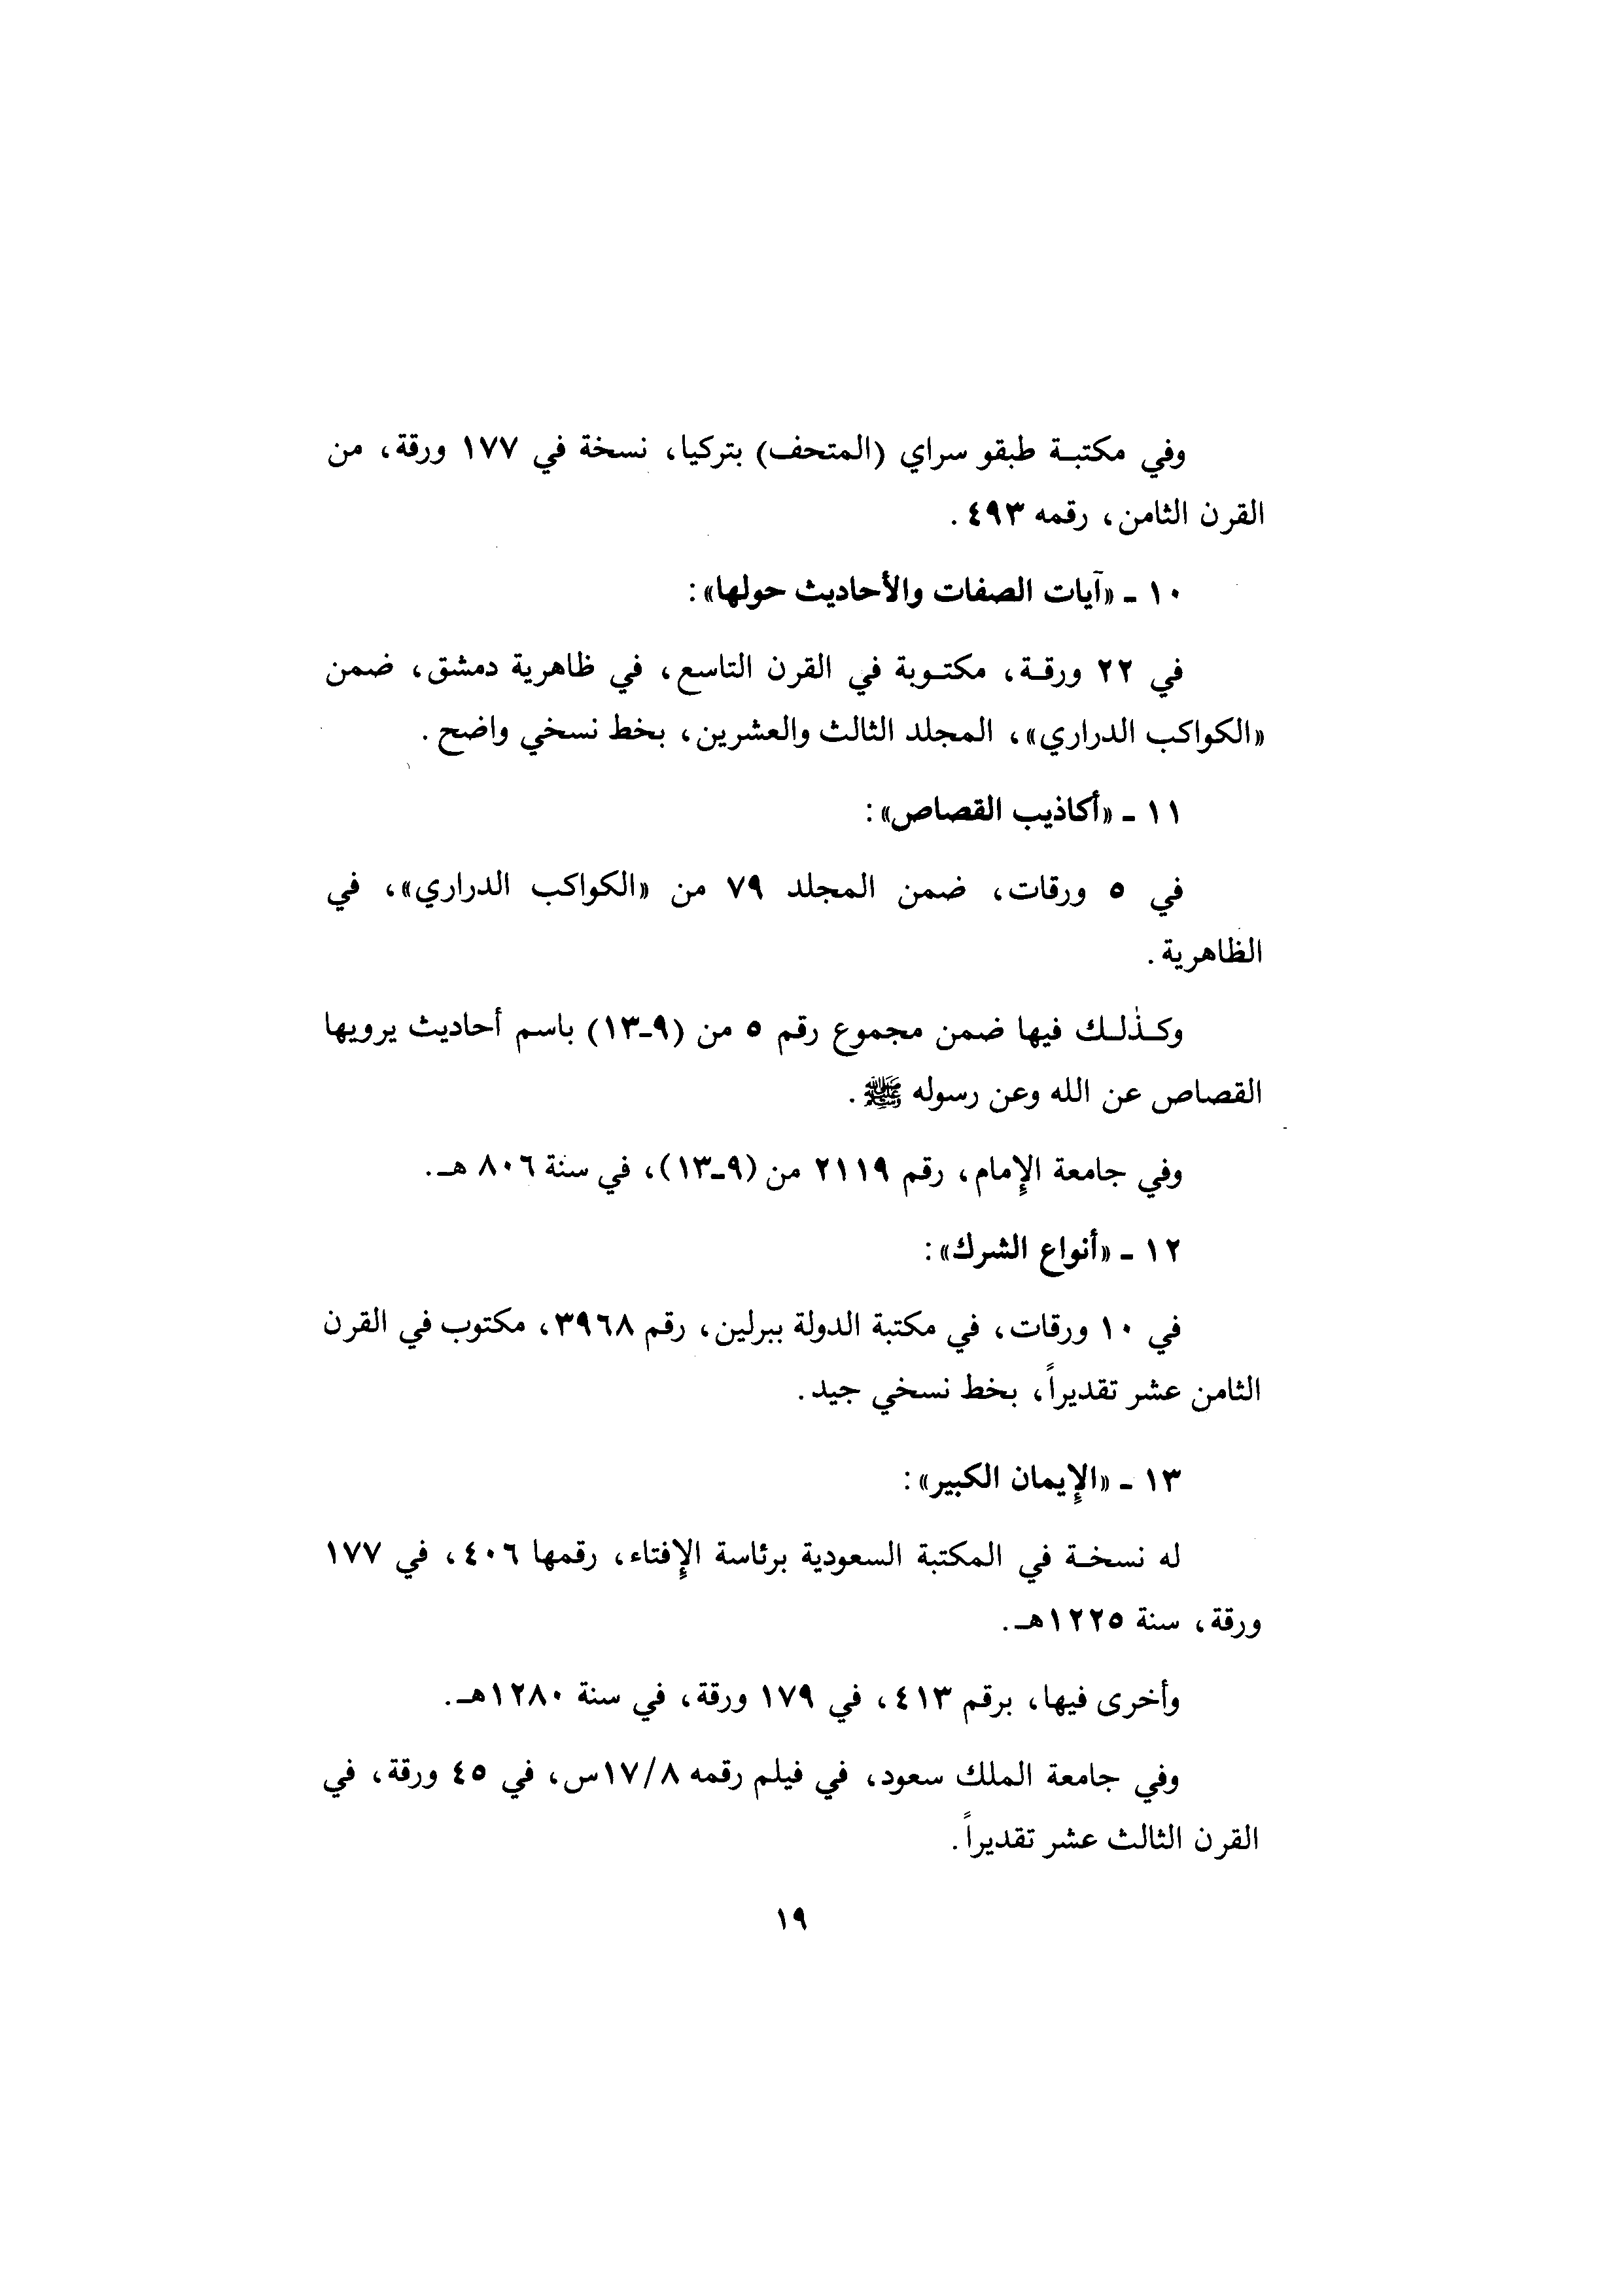 وفي مكتبـة طبقو سراي (المتحف) بتركيا، نسخة في ١٧٧ ورقة، من
القرن الثامن، رقمه ٤٩٣.
١٠ ـ «آيات الصفات والأحاديث حولها»:
في ٢٢ ورقـة، مكتـوبة في القرن التاسع، في ظاهرية دمشق، ضمن
«الكواكب الدراري»، المجلد الثالث والعشرين، بخط نسخي واضح.
١١ ـ «أكاذيب القصاص»:
في ٥ ورقات، ضمن المجلد ٧٩ من «الكواكب الدراري»، في
الظاهرية.
وكـذٰلـك فيها ضمن مجموع رقم ٥ من (٩ـ١٣) باسم أحاديث يرويها
القصاص عن الله وعن رسوله ﷺ.
وفي جامعة الإمام، رقم ٢١١٩ من (٩ـ١٣)، في سنة ٨٠٦ هـ.
١٢ ـ «أنواع الشرك»:
في ١٠ ورقات، في مكتبة الدولة ببرلين، رقم ٣٩٦٨، مكتوب في القرن
الثامن عشر تقديراً، بخط نسخي جيد.
١٣ ـ «الإيمان الكبير»:
له نسخـة في المكتبة السعودية برئاسة الإفتاء، رقمها ٤٠٦، في ١٧٧
ورقة، سنة ١٢٢٥هـ.
وأخرى فيها، برقم ٤١٣، في ١٧٩ ورقة، في سنة ١٢٨٠هـ.
وفي جامعة الملك سعود، في فيلم رقمه ١٧/٨س، في ٤٥ ورقة، في
القرن الثالث عشر تقديراً.
١٩